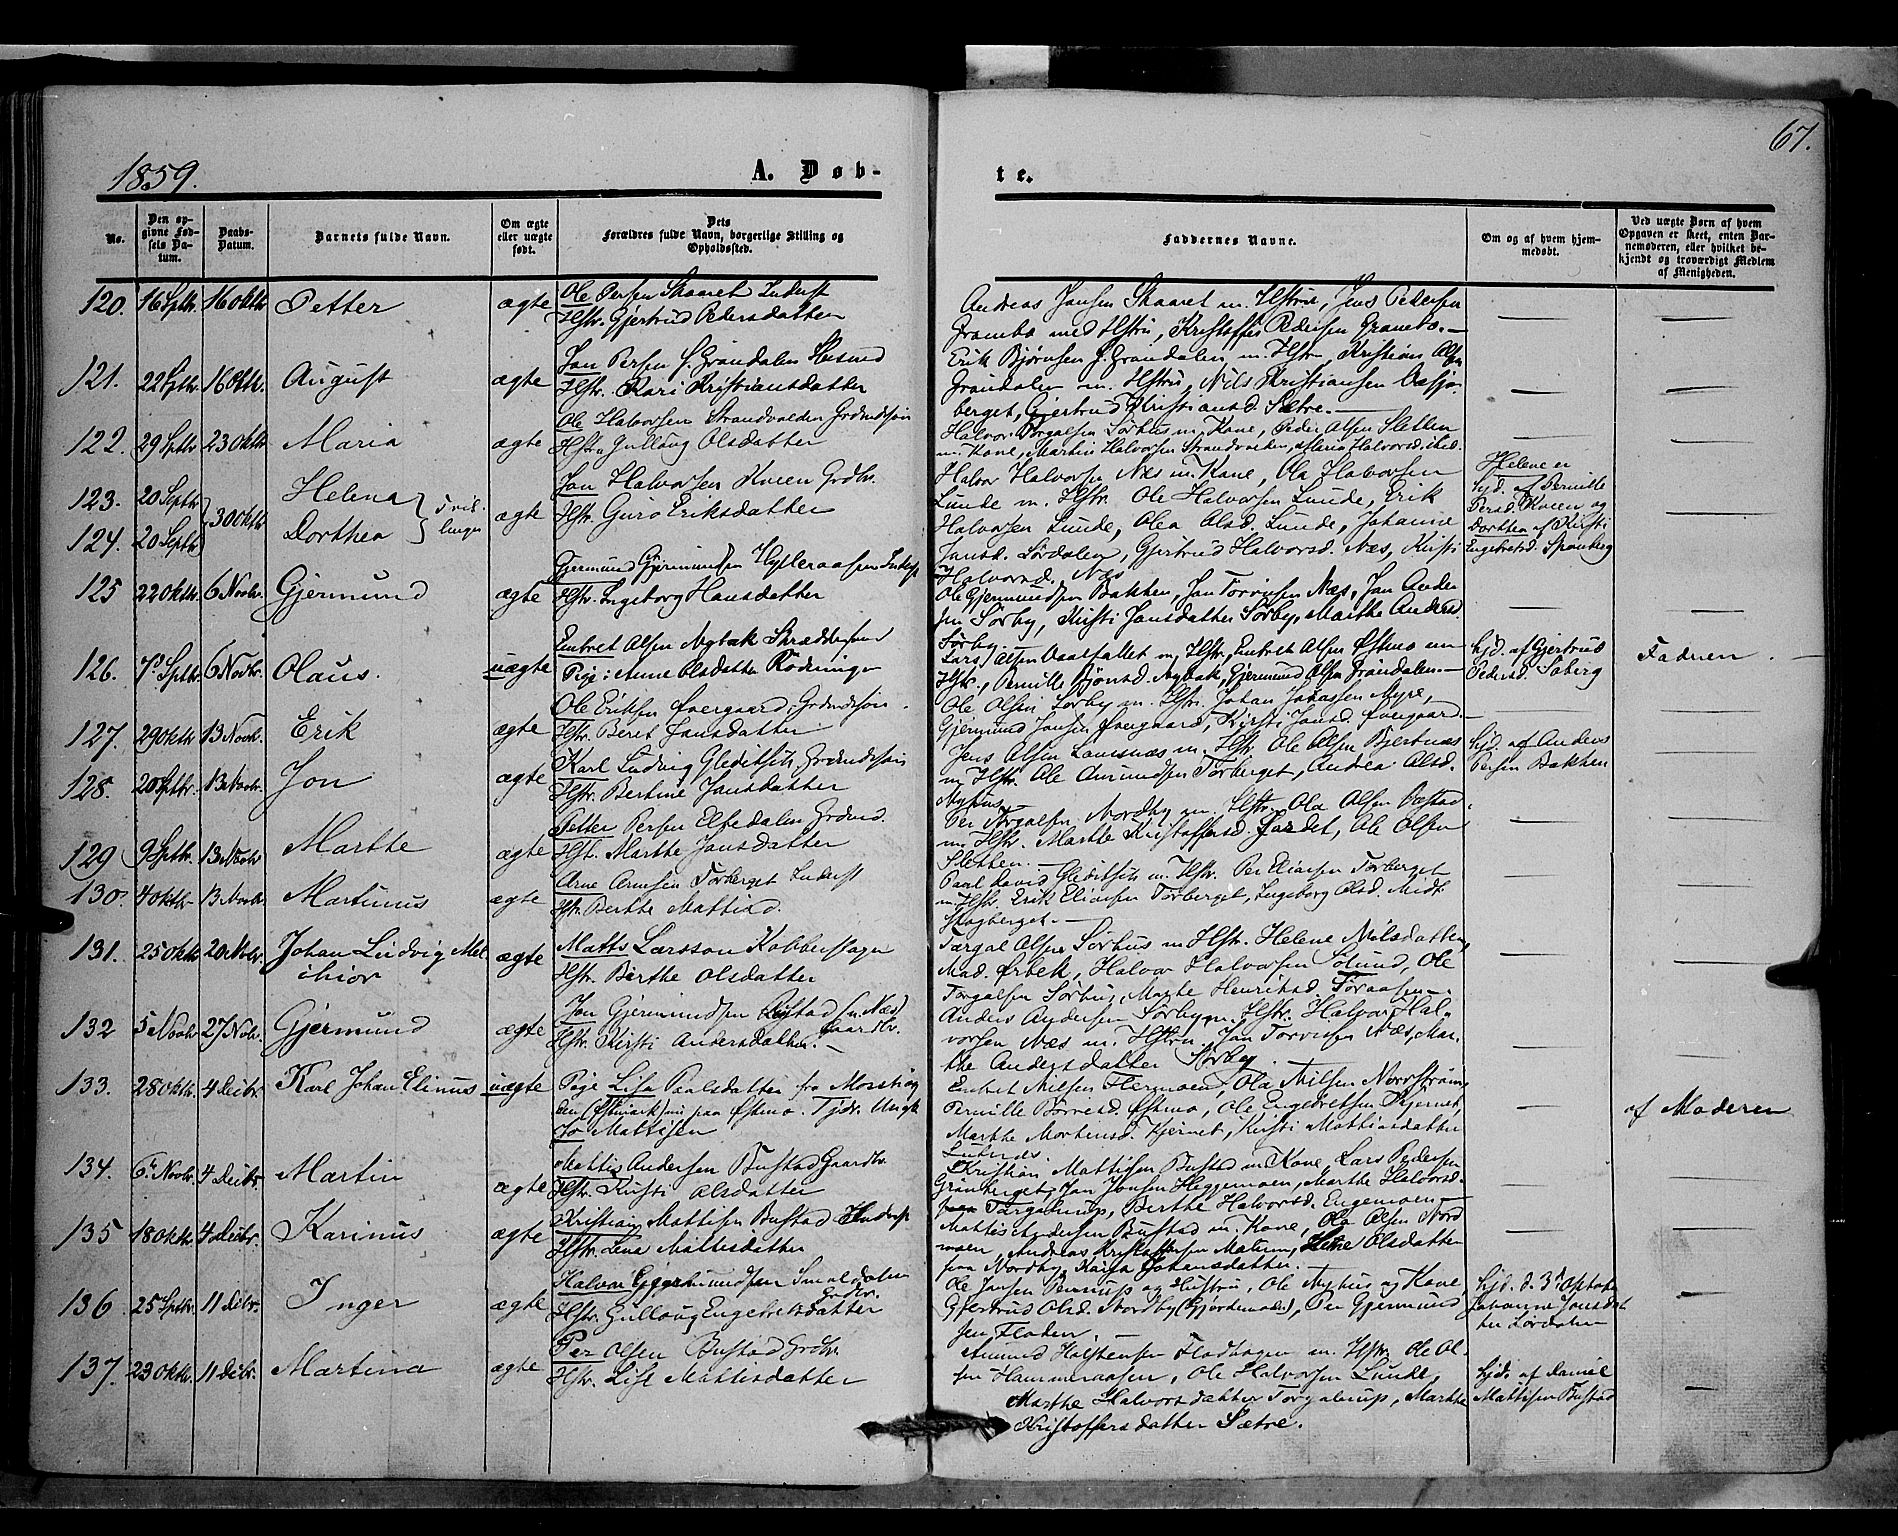 67.
1859.
A. Døb-
te.
No.
Den opgivne Fødsels Datum.
Daabs-Datum.
Barnets fulde Navn.
Om ægte eller uægte født.
Dets Forældres fulde Navn, borgerlige Stilling og Opholdssted.
Faddernes Navne.
Om og af hvem hjemmedøbt.
Ved uægte Børn af hvem Opgaven er skeet, enten Barnemoderen, eller hvilket bekjendt og troværdigt Medlem af Menigheden.
120. 16 Septbr. 16 Oktbr Petter ægte Ole Persen Skaaret Inderst
Hstr. Gjertrud Pedersdatter
Andreas Jansen Skaaret m. Hstru, Jens Pedersen
med Hstru, Kristoffer Pedersen
121. 22 Septbr. 16 Oktbr. August ægte Jan Persen Grøndalen
Hstr. Kari Kristiansdatter
Erik Bjørnsen Grøndalen m. Hstr, Kristian Olsen
Grøndalen m. Hstru, Nils Kristiansen
berget, Gjertrud Kristiansd. Sætre.
122. 29 Septbr 23 Oktbr Maria ægte Ole Halvorsen Strandvolden
Hstr. Gulloug Olsdatter
Halvor Torgalsen Sørhus m. Kone, Peder Olsen Sletten
m. Kone, Martin Halvorsen Strandvolden, Maria Halvorsd. ibid.
123. 20 Septbr 30 Oktbr Helena
124. 20 Septbr Dorthea Tvillinger ægte Jan Halvorsen Kveen Grdbr.
Hstr. Guro Eriksdatter
Halvor Halvorsen Næs m. Kone, Ola Halvorsen
Lunde m. Hstr. Ole Halvorsen Lunde, Erik
Halvorsen Lunde, Olea Olsd. Lunde, Johanne
Jansd. Sørdalen, Gjertrud Halvorsd. Næs, Kirsti
Halvorsd. Næs
Helene er
hjd. af Pernille
Persd. Kveen og
Dorthea af Kirsti
Engebretsd. Sponberg
125 22 Oktbr. 6 Novbr. Gjermund ægte Gjermund Gjermundsen Inderst
Hstr. Ingeborg Hansdatter
Ole Gjermundsen Bakken, Jan Torvisen Næs, Jan Ander
sen Sørby, Kirsti Jansdatter Sørby, Marthe Andersd.
Sørby
126. 7 Septbr. 6 Novbr. Olaus. uægte Embret Olsen Nybak
Pige: Anne Olsdatter
Lars Olsen Vaalfallet m. Hstr., Embret Olsen Østmo m
Hstr., Pernille Bjørnsd. Nybak, Gjermund Olsen Grøndalen.
hjd. af Gjertrud
Pedersd. Soberg
Faderen
127. 29 Oktbr 13 Novb. Erik ægte Ole Eriksen Øvergaard,
Hstr. Beret Jansdatter
Ole Olsen Sørby m. Hstr. Johan Johansen Myre,
Gjermund Jansen Øvergaard, Kirsti Jansd. Øvergaard.
128. 20 Septbr. 13 Novbr. Jon ægte Karl Ludvig Gleditsch,
Hstr. Bertine Jansdatter
Jens Olsen m. Hstr. Ole Olsen Bjertnæs
m Hstr. Ole Amundsen Torberget, Andrea Olsd.
Nyhus
hjd. af Anders
Persen Bakken
129 9 Septbr. 13 Novbr Marthe ægte Petter Persen Elfedalen
Hstr. Marthe Jansdatter
Per Torgalsen Nordby m Hstr. Ola Olsen
m. Hstr. Marthe Kristoffersd. Ole Olsen
Sletten.
130. 4 Oktbr 13 Novbr Martinus ægte Arne Arnesen Torberget Inderst
Hstr. Berthe Mattisd.
Paul David Gleditsch m. Hstr. Per Eliasen Torberget
m. Hstr. Erik Eliasen Torberget, Ingeborg Olsd. Midt
Skogberget
131. 25 Oktbr 20 Novbr. Johan Ludvig Mel
chior ægte Matts Larsson
Hstr. Berthe Olsdatter
Torgal Olsen Sørhus m Hstr. Helene Nilsdatter,
Mad. Ørbek, Halvor Halvorsen Ølund, Ole
Torgalsen Sørhus, Marthe Henriksd Foraasen
132 5 Novbr 27 Nobr. Gjermund ægte Jon Gjermundsen
Hstr. Kirsti Andersdatter.
Anders Andersen Sørby m. Hstr. Halvor Hal-
vorsen Næs m. Hstru, Jan Torvisen Næs, Mar-
the Andersdatter Sørby
133. 28 Oktbr. 4 Decbr. Karl Johan Elinus uægte Pige Lisa Paalsdatter fra
paa Østmo. Tjdr. Ungk
Jo Mattisen
Embret Nilsen Hermoen, Ola Nilsen
Pernille Østmo, Ole Engebretsen Kjernet,
Marthe Mortensd. Kjernet, Kirsti Mattisdatter
af Moderen
134. 6 Novbr 4 Decbr. Martin ægte Mattis Andersen Bustad Gaardbr.
Hstr. Kirsti Olsdatter
Kristian Mattisen Bustad m Kone, Lars Pedersen
Grønberget, Jan Jonsen Heggemoen, Marthe Halvorsd.
Torgalerup, Berthe Halvorsd. Engemoen
135 18 Oktbr. 4 Decbr. Karinus ægte Kristian Mattisen Bustad Inderst
Hstr. Lena Mattisdatter
Mattis Andersen Bustad m. Kone, Ola Olsen Nord
moen, Andreas Kristoffersen Olsdatter
paa Nordby, Johansdatter.
136. 25 Septbr. 11 Decbr. Inger ægte Halvor Gjermundsen Smaldalen
Grdbr.
Hstr. Gulloug Engebretsdatter
Ole Jansen og Hustru, Ole Nyhus og Kone,
Gjertrud Olsd. Nordby (Gjordemoder), Per Gjermund
sen Floden.
hjd. d. 3 Oktobr
Johanne Jansdat
ter Sørdalen
137. 23 Oktbr. 11 Decbr. Martina ægte Per Olsen Bustad Grdbr.
Hstr. Lise Mattisdatter
Amund Halstensen Flodhagen m. Hstr. Ole Ol-
sen Hammeraasen, Ole Halvorsen Lunde,
Marthe Halvorsdatter Torgalerup, Marthe
Kristoffersdatter Sætre.
hjd. af Daniel
Mattisen Bustad